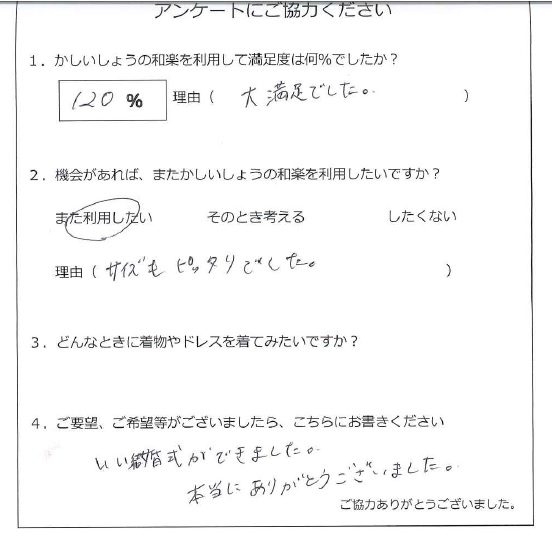 アンケートにご協力ください
1．かしいしょうの和楽を利用して満足度は何%でしたか？
120 % 理由（ 大満足でした。 ）
2．機会があれば、またかしいしょうの和楽を利用したいですか？
また利用したい そのとき考える したくない
理由（ サイズも ピッタリでした。 ）
3．どんなときに着物やドレスを着てみたいですか？
4．ご要望、ご希望等がございましたら、こちらにお書きください
いい結婚式ができました。
本当にありがとうございました。
ご協力ありがとうございました。